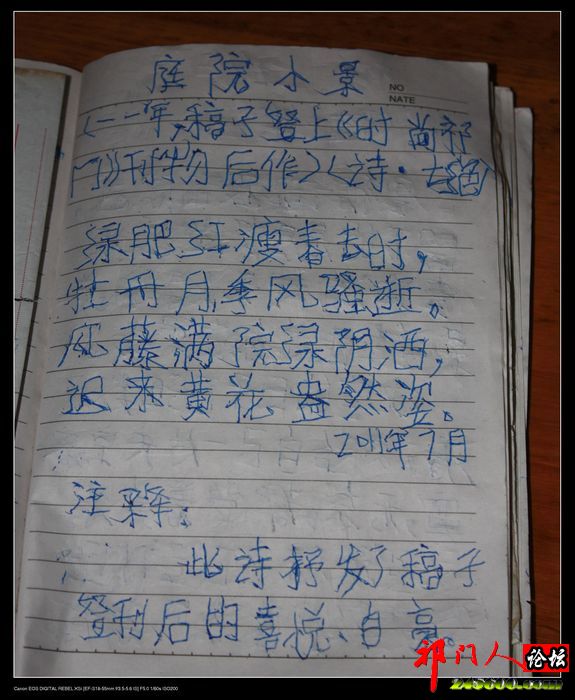 庭院小景
NO
NATE
(一一年,稿子登上《时尚祁
门》刊物后作)(诗·七绝)
绿肥红瘦春去时,
牡丹月季风骚逝。
爪藤满院绿阴洒,
迟来黄花盎然姿。
2011年7月
注释:
此诗抒发了稿子
登刊后的喜悦、自
祁门人论坛
Canon EOS DIGITAL REBEL XSi [EF-S18-55mm f/3.5-5.6 IS] F5.0 1/60s ISO200